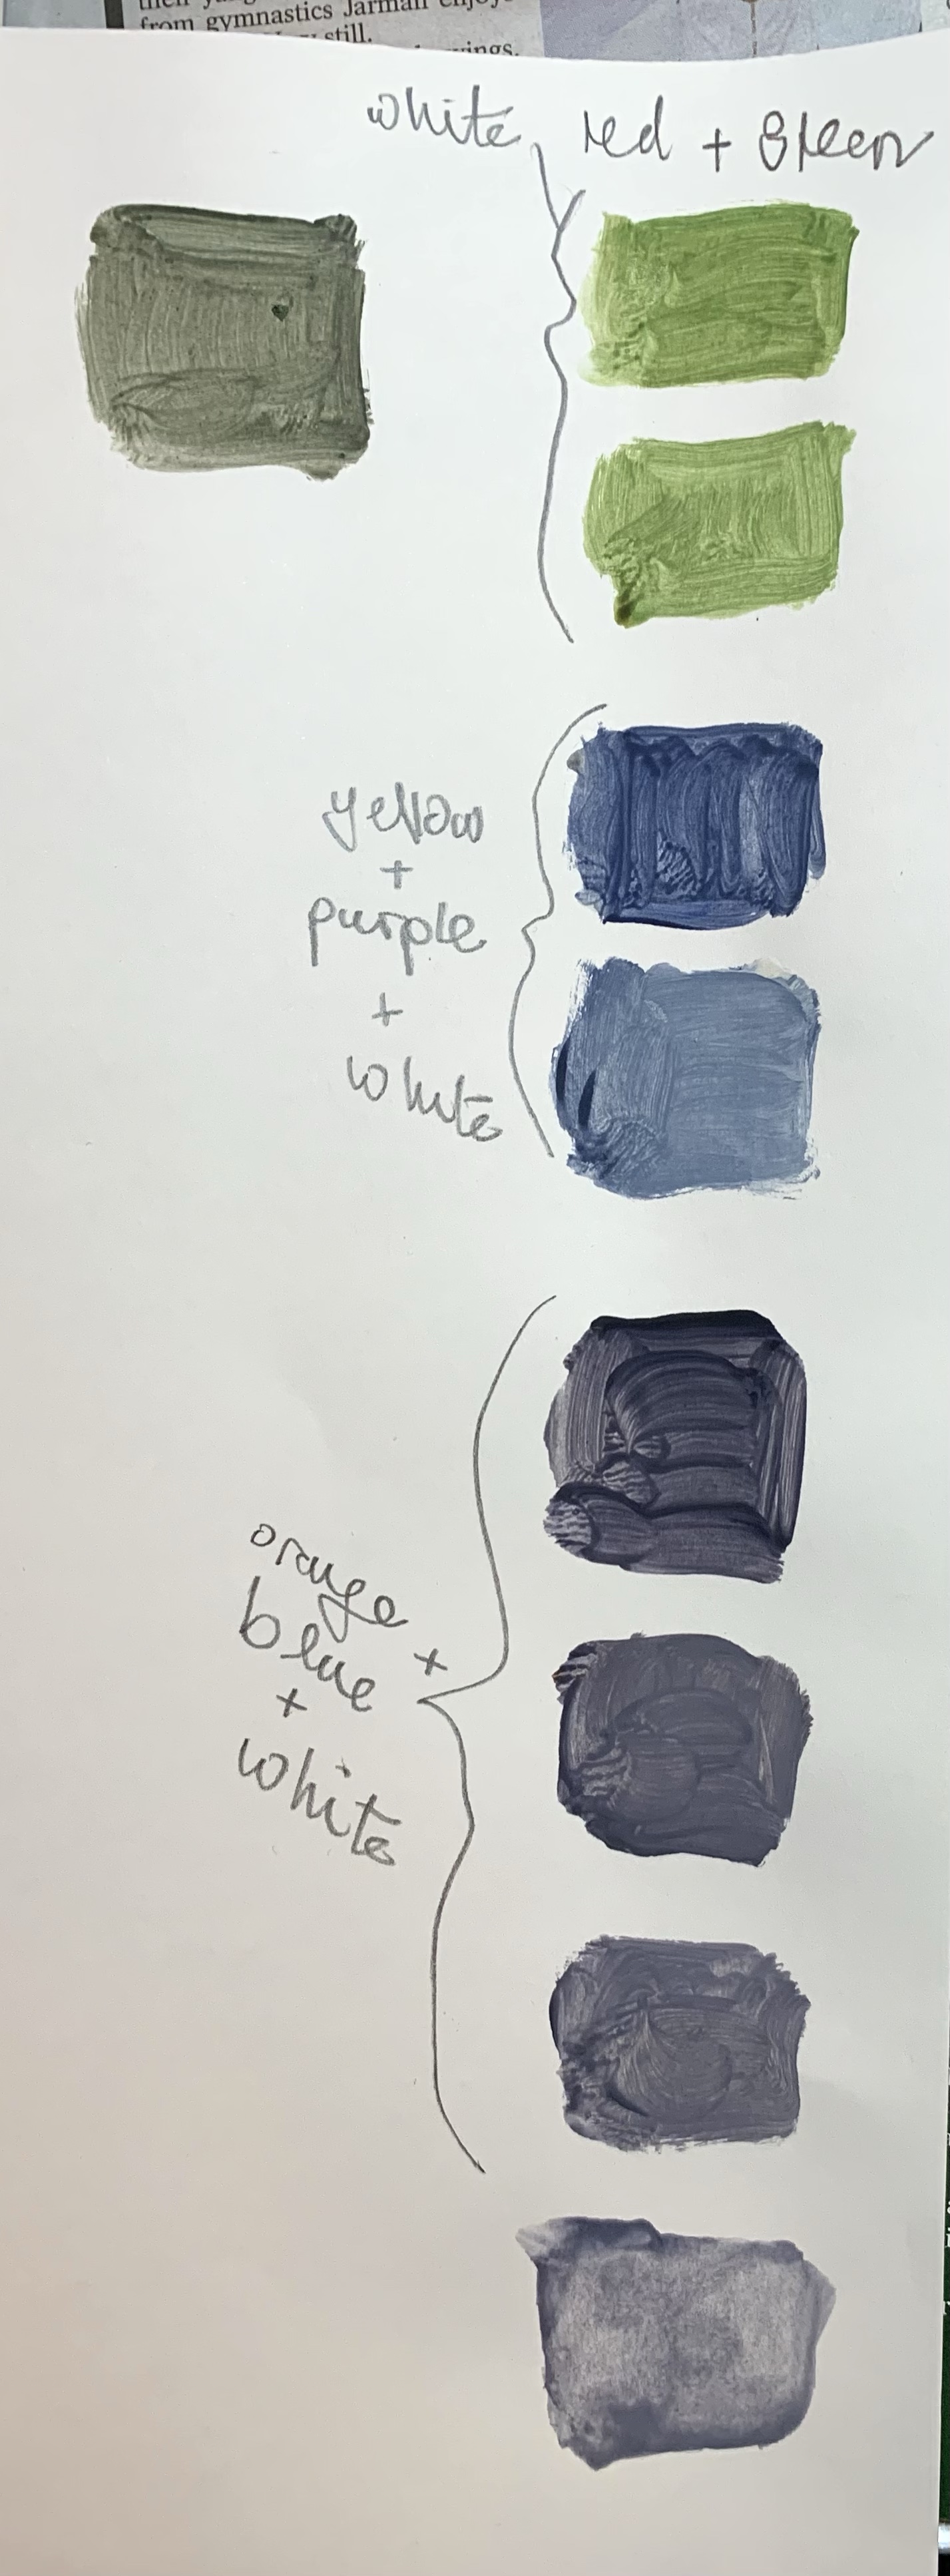 from gymnastics Jarman enjoys
still.
white, red + green
yellow
+
purple
+
white
orange +
blue
+
white